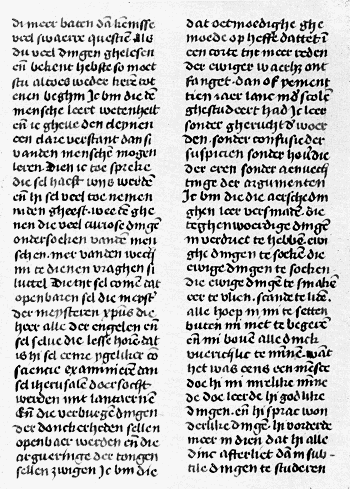 di meer baten dā kēnisse
veel swaerre questiē Als
du veel dingen ghelesen
eñ bekent hebste so moet
stu altoes weder herē tot
enen beghīn Ic bin die dē
mensche leert wetenheit
eñ ic gheve den cleynen
een clare verstant dan si
vanden menschē mogen
leren. Dien ic toe spreke
die sel haest wiis werdē
eñ hi sel veel toe nemen
in den gheest. wee dē ghe
nen die veel curiose dīgē
ondersoeken vandē men
schen. mer vanden wech
mi te dienen vraghen si
luttel. Die tijt sel comē dat
openbaren sel die meyst̄
der meysteren xp̄us die
heer alre der engelen eñ
sel selve die lesse horē dat
is hi sel eenre ygeliker cō
sciencie examinerē dan
sel iherusalē doersocht
werden mit lanternen
Eñ die verburgē dingen
der doncherheden sellen
openbaer werden eñ die
argueringe der tongen
sellen zwigen Ic bin die
dat oetmoedighe ghe
moede op heffe dattet ī
een corte tijt meer reden
der ewiger waerh; ont
fanget. dan of yement
tien iaer lanc in d scolē
ghestudeert had Ic leer
sonder gherucht d woer
den. sonder confusie der
suspicien sonder hovdie
der eren sonder aenvech
tinge der argumenten
Ic bin die die aersche dī
ghen leer versmadē. die
teghenwoerdige dingē
in verdriet te hebbē ewi
ghe dingen te soekē die
ewige dingen te soeken
die ewige dingē te smakē
eer te vlien. scande te lidē.
alle hoep in mi te setten
buten mi niet te begerē
eñ mi bovē alle dinck
vuerichlic te minnē. wāt
het was eens een mēsce
doe hi mi inrelike mine
de doe leerde hi godlike
dingen. eñ hi sprac won
derlike dingē. hi vorderde
meer in dien dat hi alle
dinc afterliet dā in sub-
tile dingen te studeren